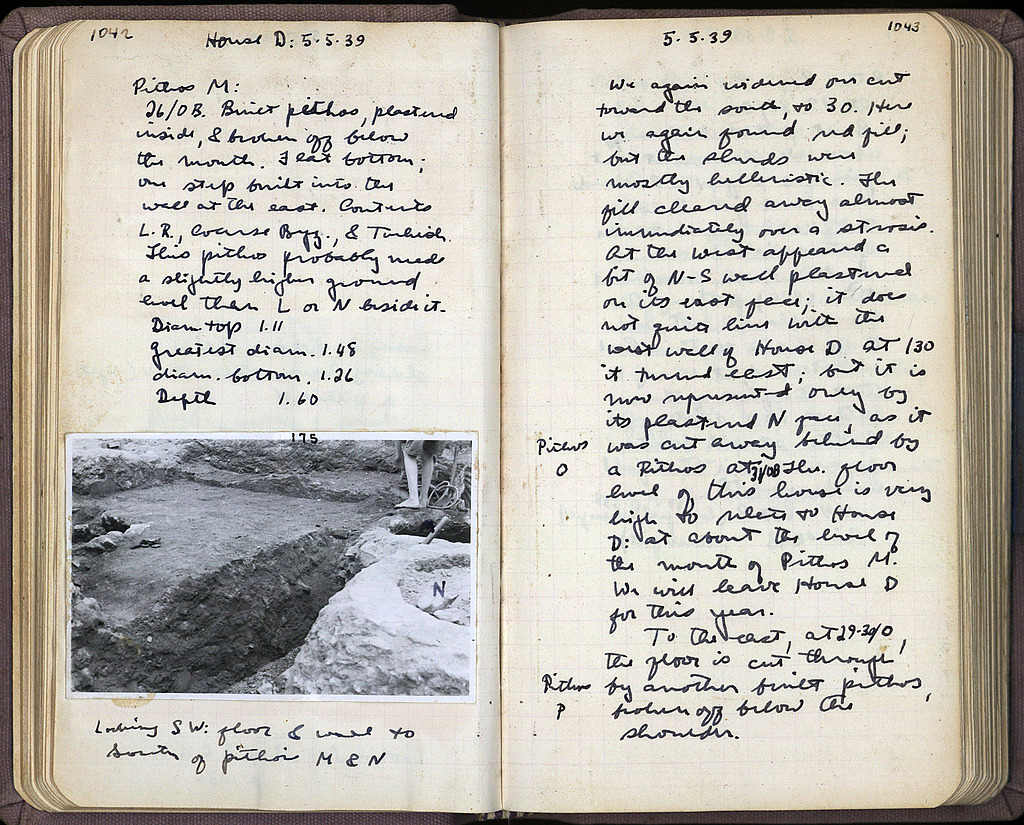 1042
House D: 5.5.39
Pithos M:
26/ΟΒ. Built pithos, plastered
inside, & broken off below
the mouth. Flat bottom;
one step built into the
wall at the east. Contents
L.R., Coarse Byz., & Turkish.
This pithos probably used
a slightly higher ground
level than L or N beside it.
Diam top 1.11
greatest diam. 1.48
diam. bottom. 1.26
Depth 1.60
175
N
Looking SW: floor & wall to
South of pithoi M & N
1043
5.5.39
We again widened our cut
toward the south, to 30. Here
we again found red fill;
but the sherds were
mostly hellenistic. The
fill cleared away almost
immediately over a strosis.
At the west appeared a
bit of N-S wall plastered
on its east face; it does
not quite line with the
west wall of House D. At 130
it turned east; but it is
now represented only by
its plastered N face, as it
Pithos O
was cut away behind by
a Pithos at 31/ΟΒ The floor
level of this house is very
high to relate to House
D: at about the level of
the mouth of Pithos M.
We will leave House D
for this year.
To the east, at 29-30/Ο,
the floor is cut through
Pithos P
by another built pithos,
broken off below the
shoulder.